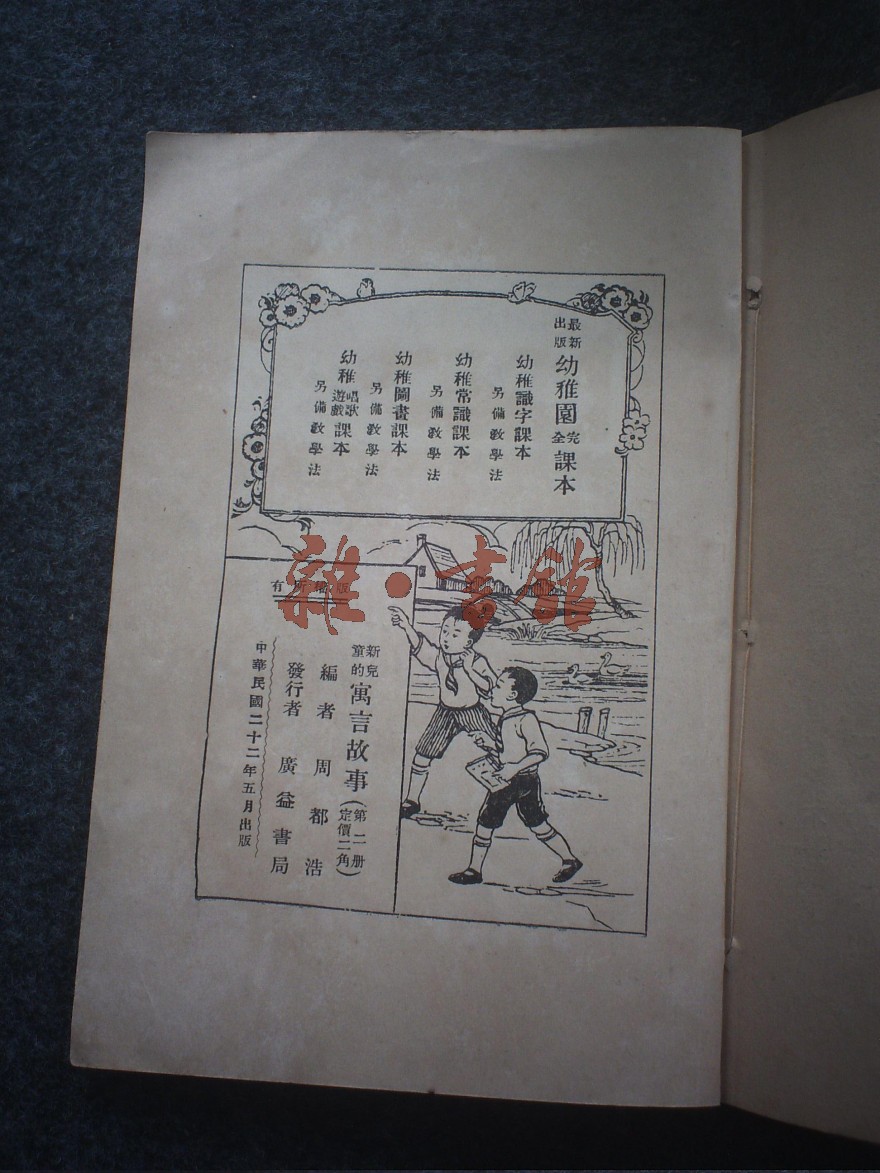 最新出版 幼稚園完全課本
幼稚識字課本
另備教學法
幼稚常識課本
另備教學法
幼稚圖畫課本
另備教學法
幼稚唱歌遊戲課本
另備教學法
雜·書館
版權所有
新兒童的 寓言故事 (第二册 定價二角)
編者 周都浩
發行者 廣益書局
中華民國二十二年五月出版